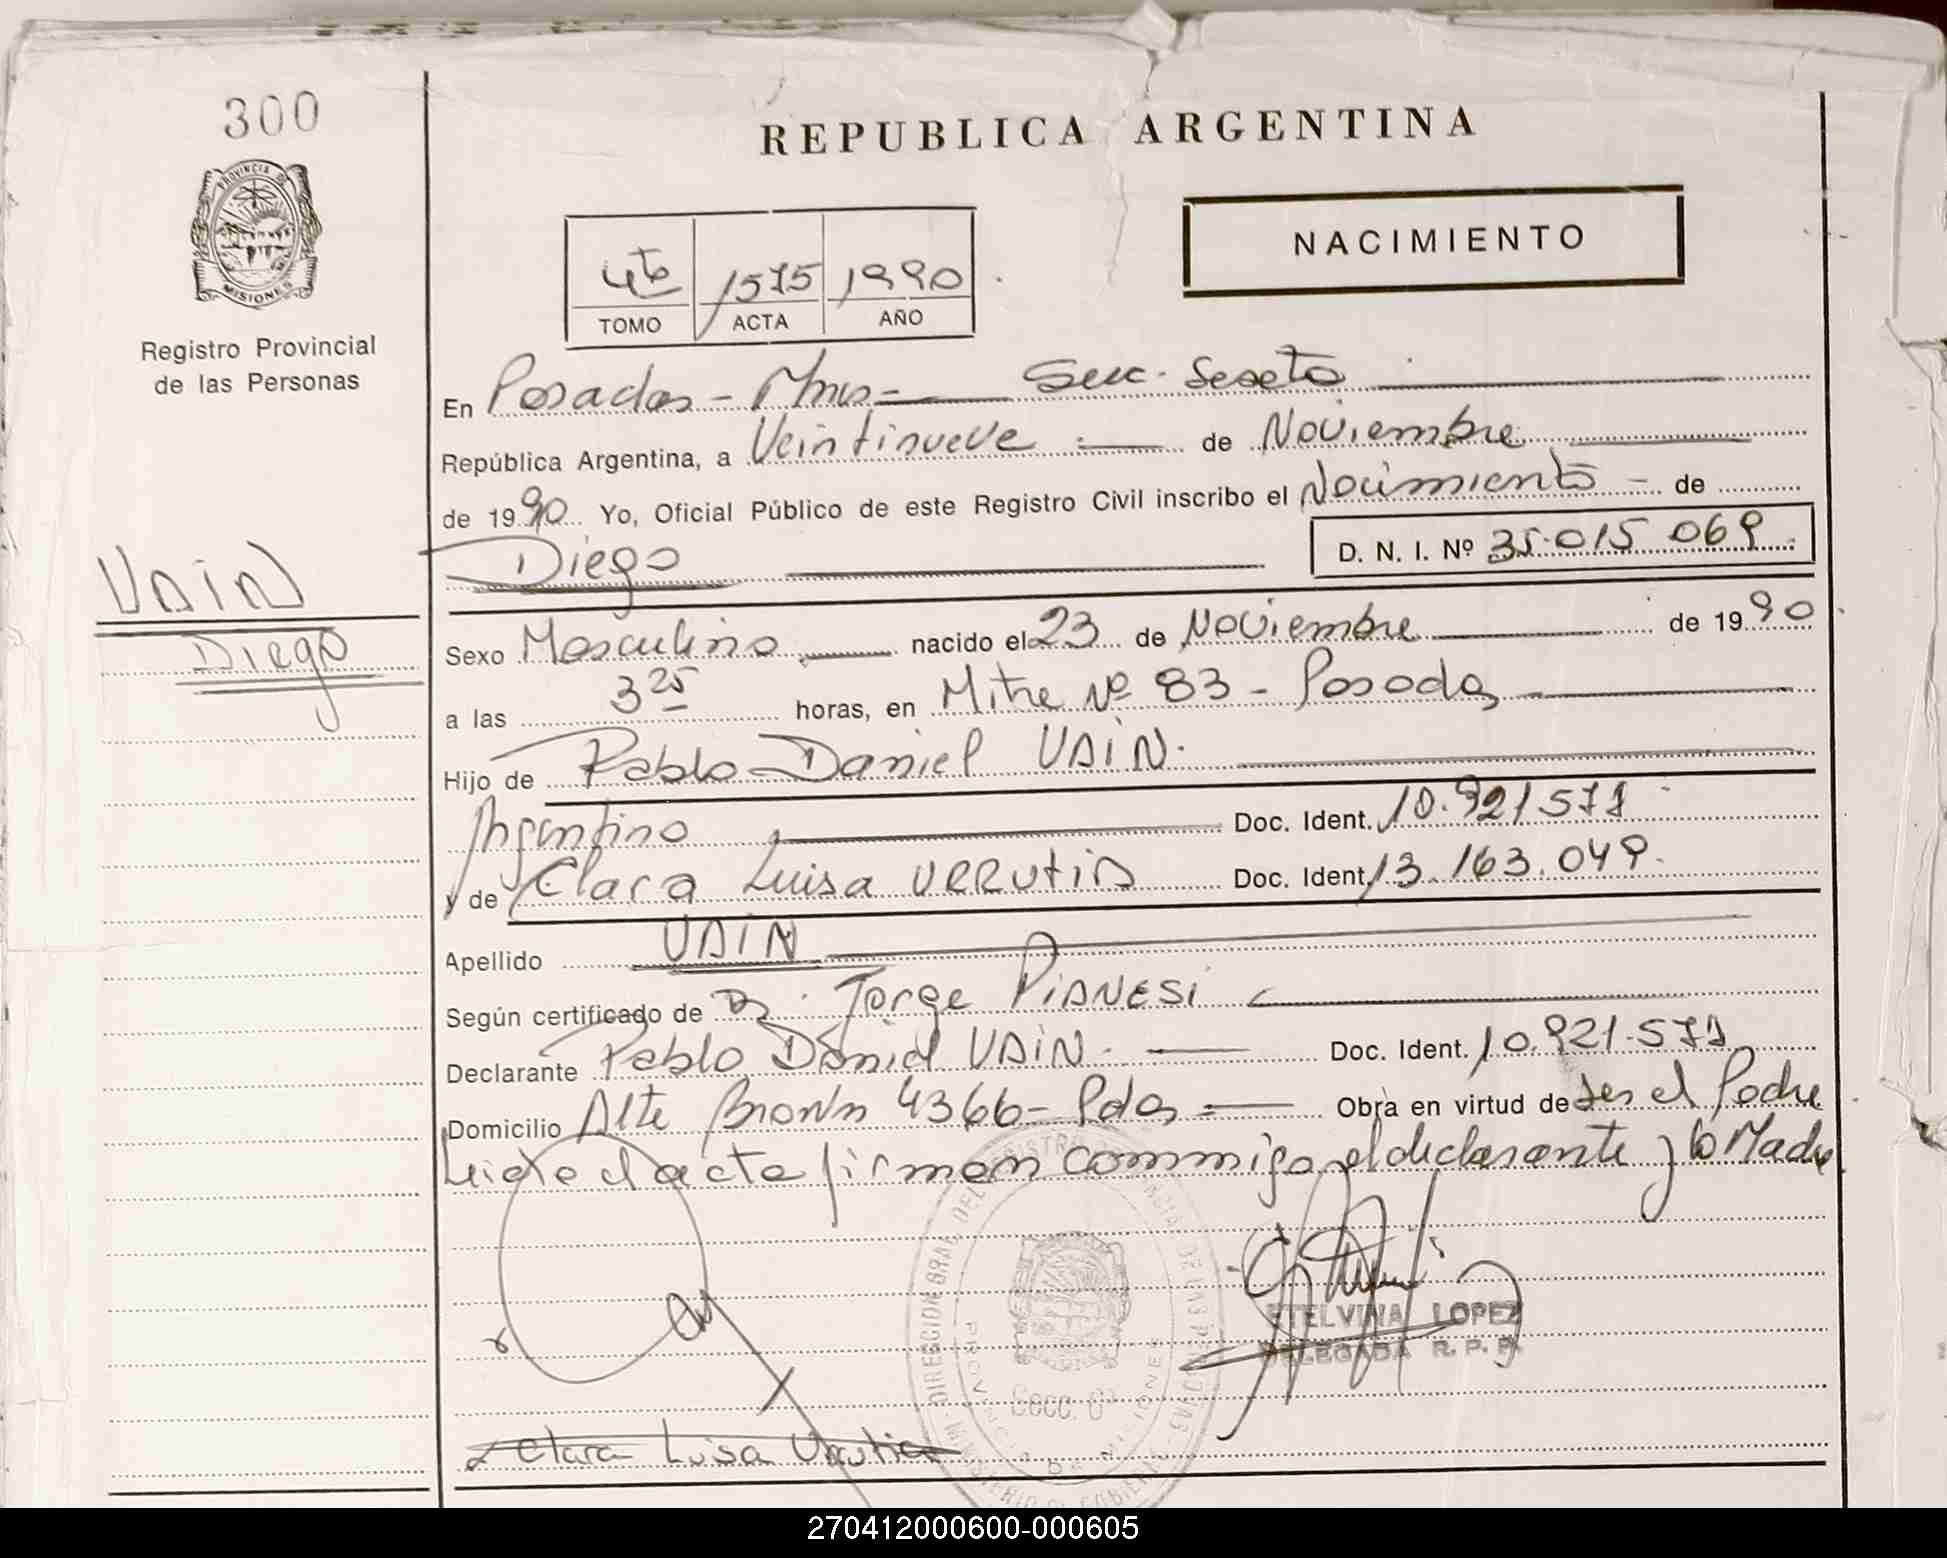 300
REPUBLICA ARGENTINA
PROVINCIA DE
MISIONES
Registro Provincial
de las Personas
NACIMIENTO
4to 1575 1990
TOMO ACTA AÑO
En Posadas - Mnes - Secc. Sexta
República Argentina, a Veintinueve de Noviembre
de 1990 Yo, Oficial Público de este Registro Civil inscribo el Nacimiento - de
Diego D. N. I. Nº 35.015.069
VAIN
Diego
Sexo Masculino nacido el 23 de Noviembre de 1990
a las 3 25 horas, en Mitre Nº 83 - Posadas
Hijo de Pablo Daniel VAIN.
Argentino Doc. Ident. 10.921.571
y de Clara Luisa URRUTIA Doc. Ident. 13.163.049.
Apellido VAIN
Según certificado de Dr. Jorge PIANESI
Declarante Pablo Daniel VAIN. Doc. Ident. 10.921.571
Domicilio Alte Brown 4366 - Pdas Obra en virtud de ser el Padre
Leída el acta firman conmigo el declarante y la Madre
ETELVINA LOPEZ
DELEGADA R. P. P.
Secc. 6ª
Clara Luisa Urrutia
270412000600-000605